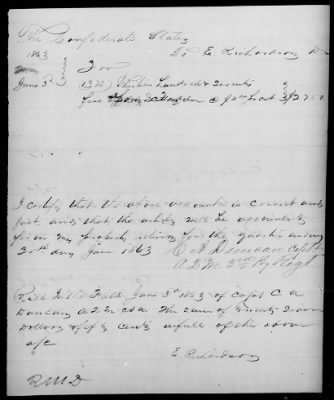 The Confederate States
1863 To E. Richardson Dr
June 3d For
(1375) Thirteen Hundred & Seventy
five Fodder @
I certify that the above account is correct and
just, and that the articles will be accounted
for on my property return for the quarter ending
30th day June 1863 C A Duncan Capt &
A.Q.M. 2nd Regt
Recd June 3d 1863 of Capt C. A
Duncan A Q M CSA the sum of Twenty Seven
Dollars & fifty cents in full of the above
a/c
E. Richardson
QMD